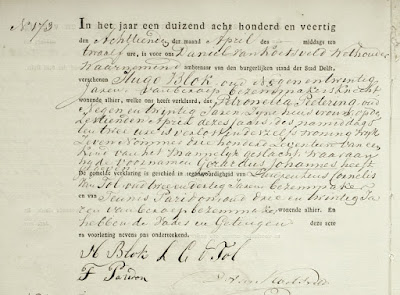 No 173
In het jaar een duizend acht honderd en veertig
den Achttienden der maand April des middags ten
twaalf ure, is voor ons Daniel van Koetsveld Wethouder
Waarnemend ambtenaar van den burgerlijken stand der Stad Delft,
verschenen Hugo Blok, oud Negenentwintig
Jaren van beroep bezemmakersknecht
wonende alhier, welke ons heeft verklaard, dat Petronella Pietering, oud
Negen en twintig Jaren zijne huisvrouw, op den
Zestienden April dezes Jaars des namiddags
ten twee ure is verlost in derzelfs woning wijk
Zeven Nommer drie honderd Zeventien van een
kind van het Mannelijk geslacht, waaraan
hij de voornamen Johannes heeft
De gemelde verklaring is geschied in tegenwoordigheid van Cornelis
van Tol, oud twee en veertig Jaren bezemmaker
en van Teunes Pardon oud drie en twintig Ja-
ren van beroep bezemmaker wonende alhier. En
hebben de Vader en Getuigen deze acte
na voorlezing nevens ons onderteekend.
H Blok L C v Tol
T Pardon